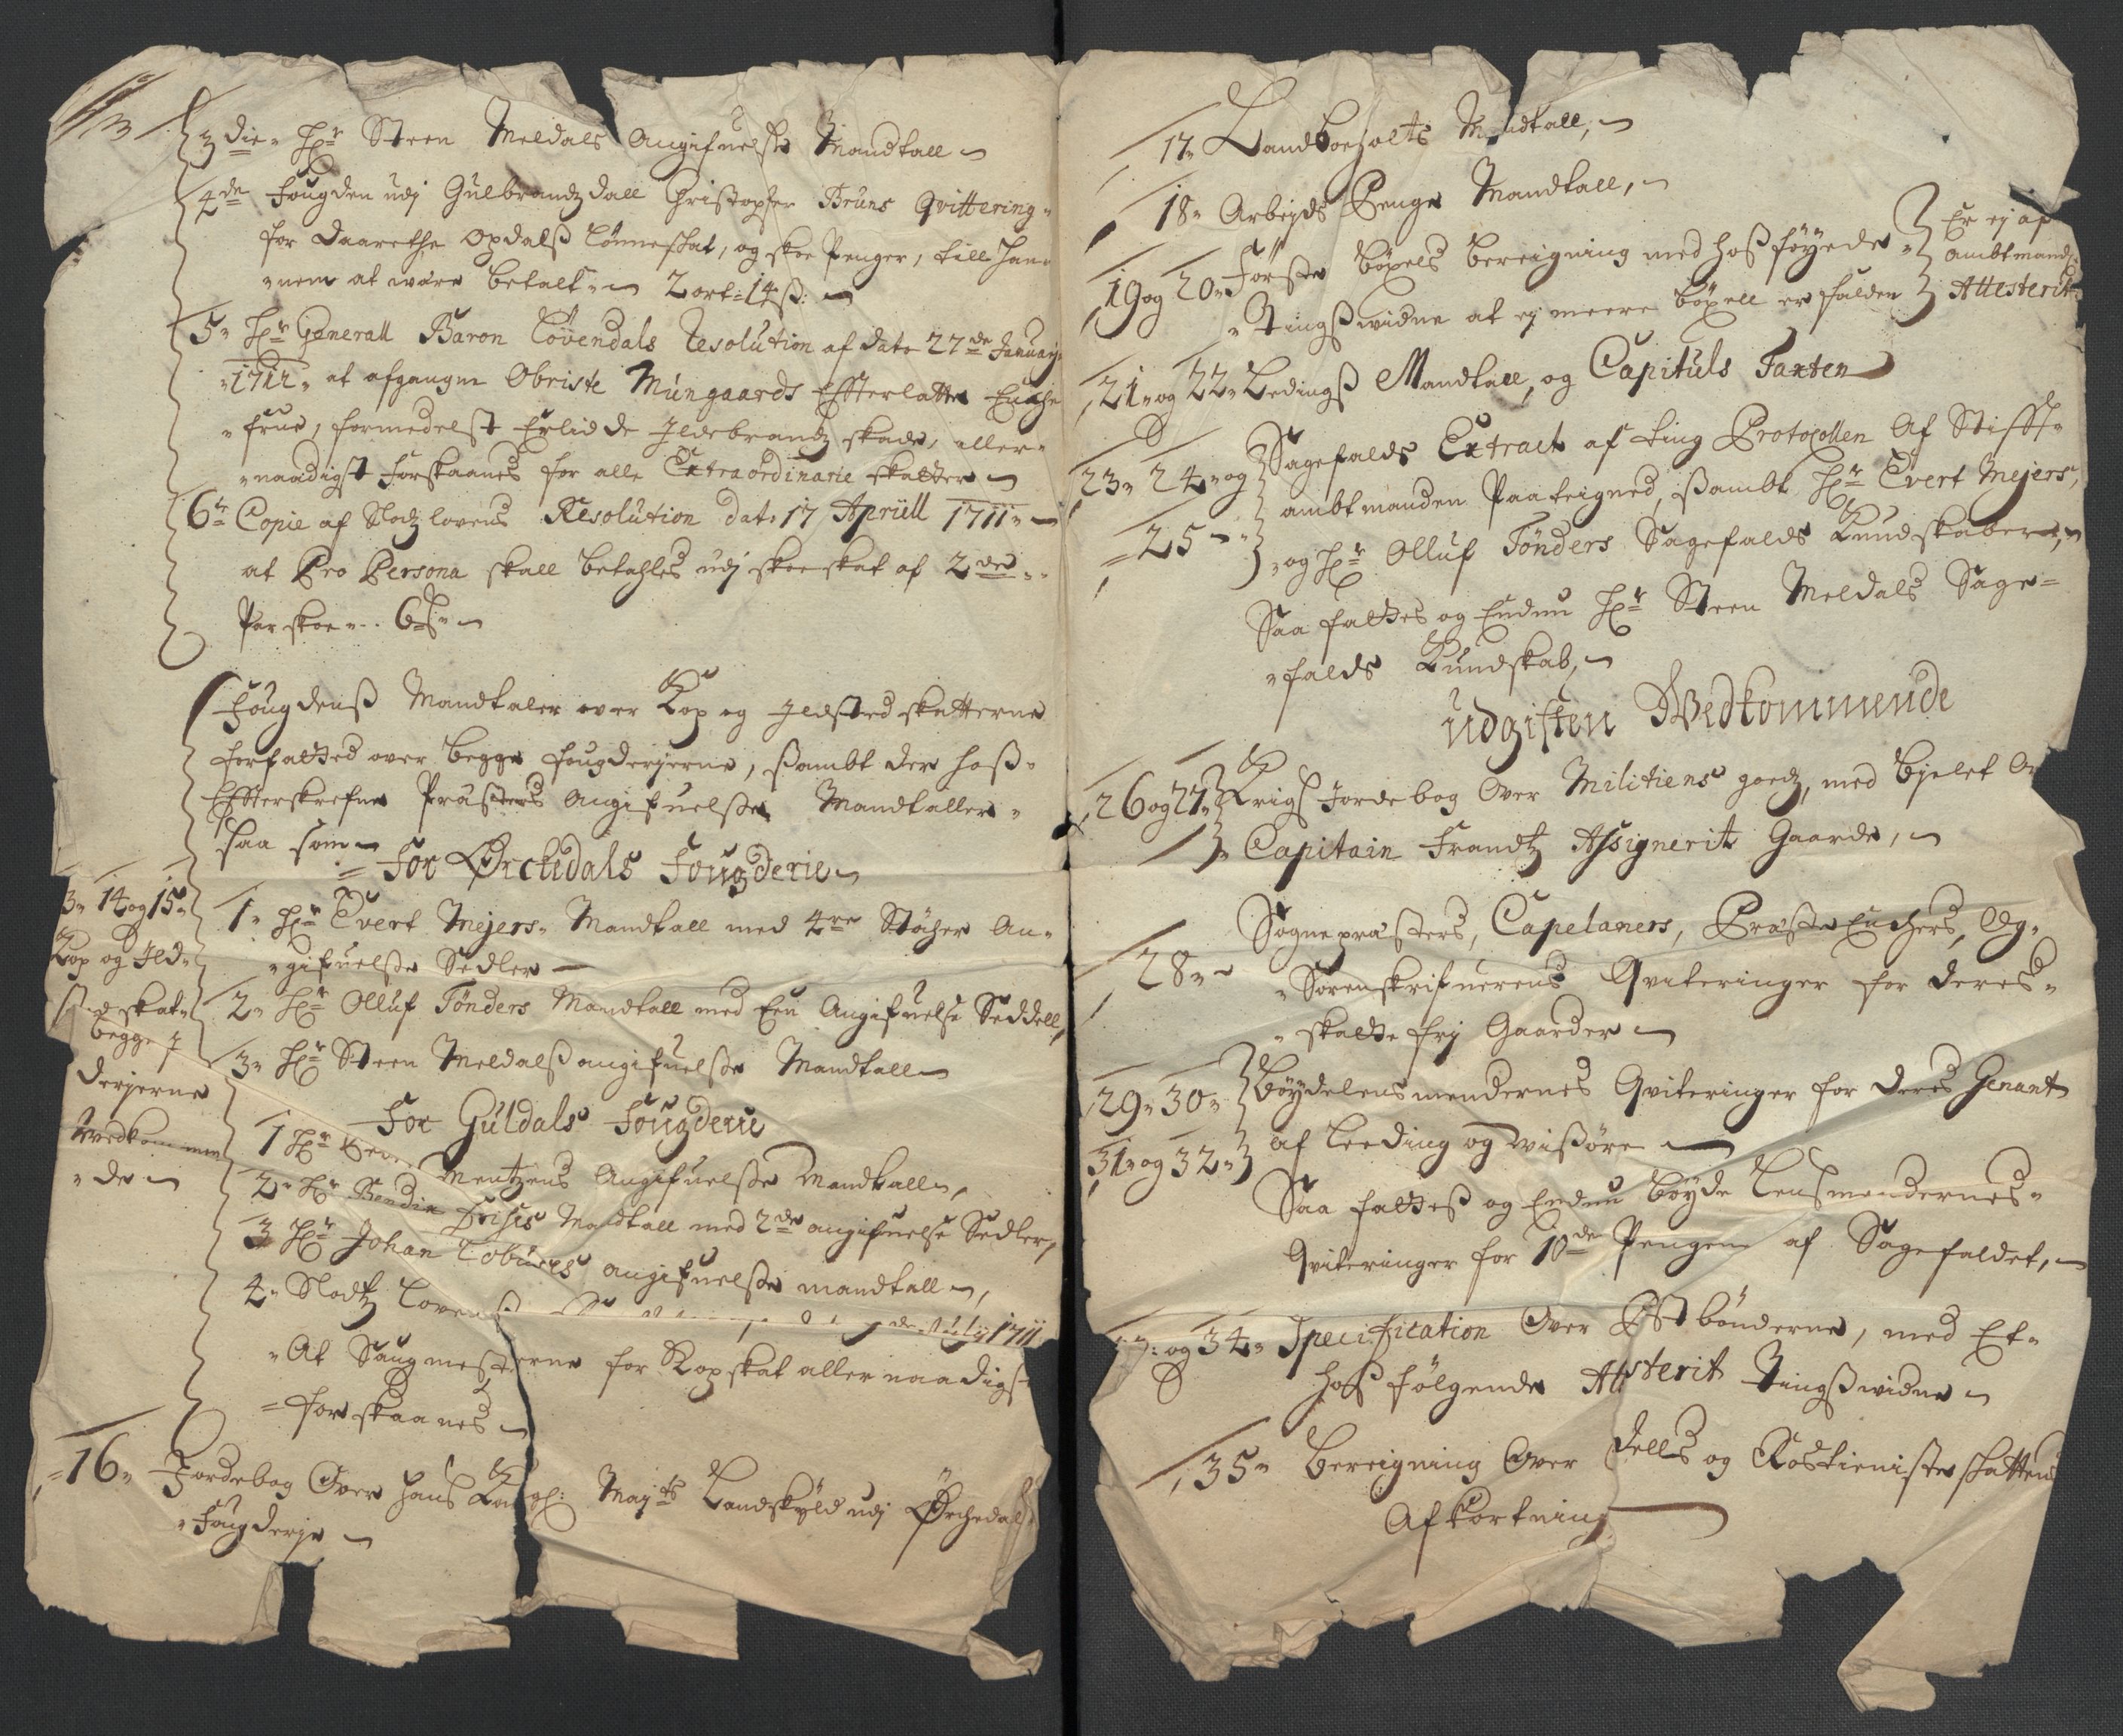 3die Hr Steen Meldals Angifuelse Mandtall
4de Fougden udj Gulbrandzdall Christopher Bruns Qvittering
for Daarethe Opdalß Lønneskat, og skoe Penger, till han-
nem at være betalt 2 ort: 14 ß:
5 Hr Generall Baron Løvendals Resolution af dato 27de Januarj
1712 at afgangne Obriste Mungaards Effterlatte Enche
frue, formedelst Erlidde Jldebrandz skade, aller-
naadigst forskaanes for alle Extraordinarie skatter
6te Copie af Slodzlovens Resolution dat. 17 Apriill 1711
at Pro Persona skall betahles udj skoeskat af 2de
Par skoe 6 ß
Fougdenß Mandtaler over Kop og Jldsted skatterne
forfatted over begge fougderjerne, sambt der hoß
Effterskrefne Præsters Angifuelse Mandtaller
saa som
For Ørchdals Fougderie
3 14 og 15
Kop og Jld-
sted skat
begge f
derjerne
Vedkommen
de
1 Hr Evert Mejers Mandtall med 4re Støcher An-
gifuelse Sedler
2 Hr Olluf Tønders Mandtall med Een Angifuelse Seddell,
3 Hr Steen Meldalß angifuelse Mandtall
For Guldals Fougderie
1 Hr Mentzens Angifuelse Mandtall,
2 Hr Bendix Frises Mandtall med 2de angifuelse Sedler,
3 Hr Johan Lobuers angifuelse mandtall,
4 Slodtz Lovenß de July 1711
At Saugmesterne for Kopskat allernaadigst
forskaanes
16 Jordebog Over Hans Kongl: Mayts Landskyld udj Ørchedals
Fougderje
17 Landboeholts Mandtall,
18 Arbejds Penge Mandtall,
19 og 20 Første bøxels bereigning med hoßføyede
Tingßvidne at ej meere bøxell er falden
Er ej af
Ambtmand
Attesterit
21 og 22 Ledingß Mandtall, og Capituls Taxten
23 24 og
25
Sagefalds Extract af ting Protocollen Af Stifft-
ambtmanden Paateigned, sambt Hr Evert Mejers,
og Hr Olluf Tønders Sagefalds Kundskaber,
Saa fattes og Endnu Hr Steen Meldals Sage-
falds Kundskab,
Udgiften Vedkommende
26 og 27 Krigs Jordebog Over Militiens goedz, med bielet
Capitain Frandtz Assignerit Gaarde,
28 Sogne præsters, Capelaners, Præste Enchers, Og
Sorenskrifuerens Qviteringer for deres
skatte frj Gaarder
29 30
31 og 32
Bøydelensmendernes Qviteringer for deres Genant
af Leeding og Vißøre
Saa fatteß og Endnu bøyde Lensmendernes
Qviteringer for 10de Pengen af Sagefaldet,
og 34 Specification Over Øst bønderne, med Et
hoß følgende Attesterit Tingßvidne
35 Bereigning Over Dells og Rostieniste skattens
Afkortning